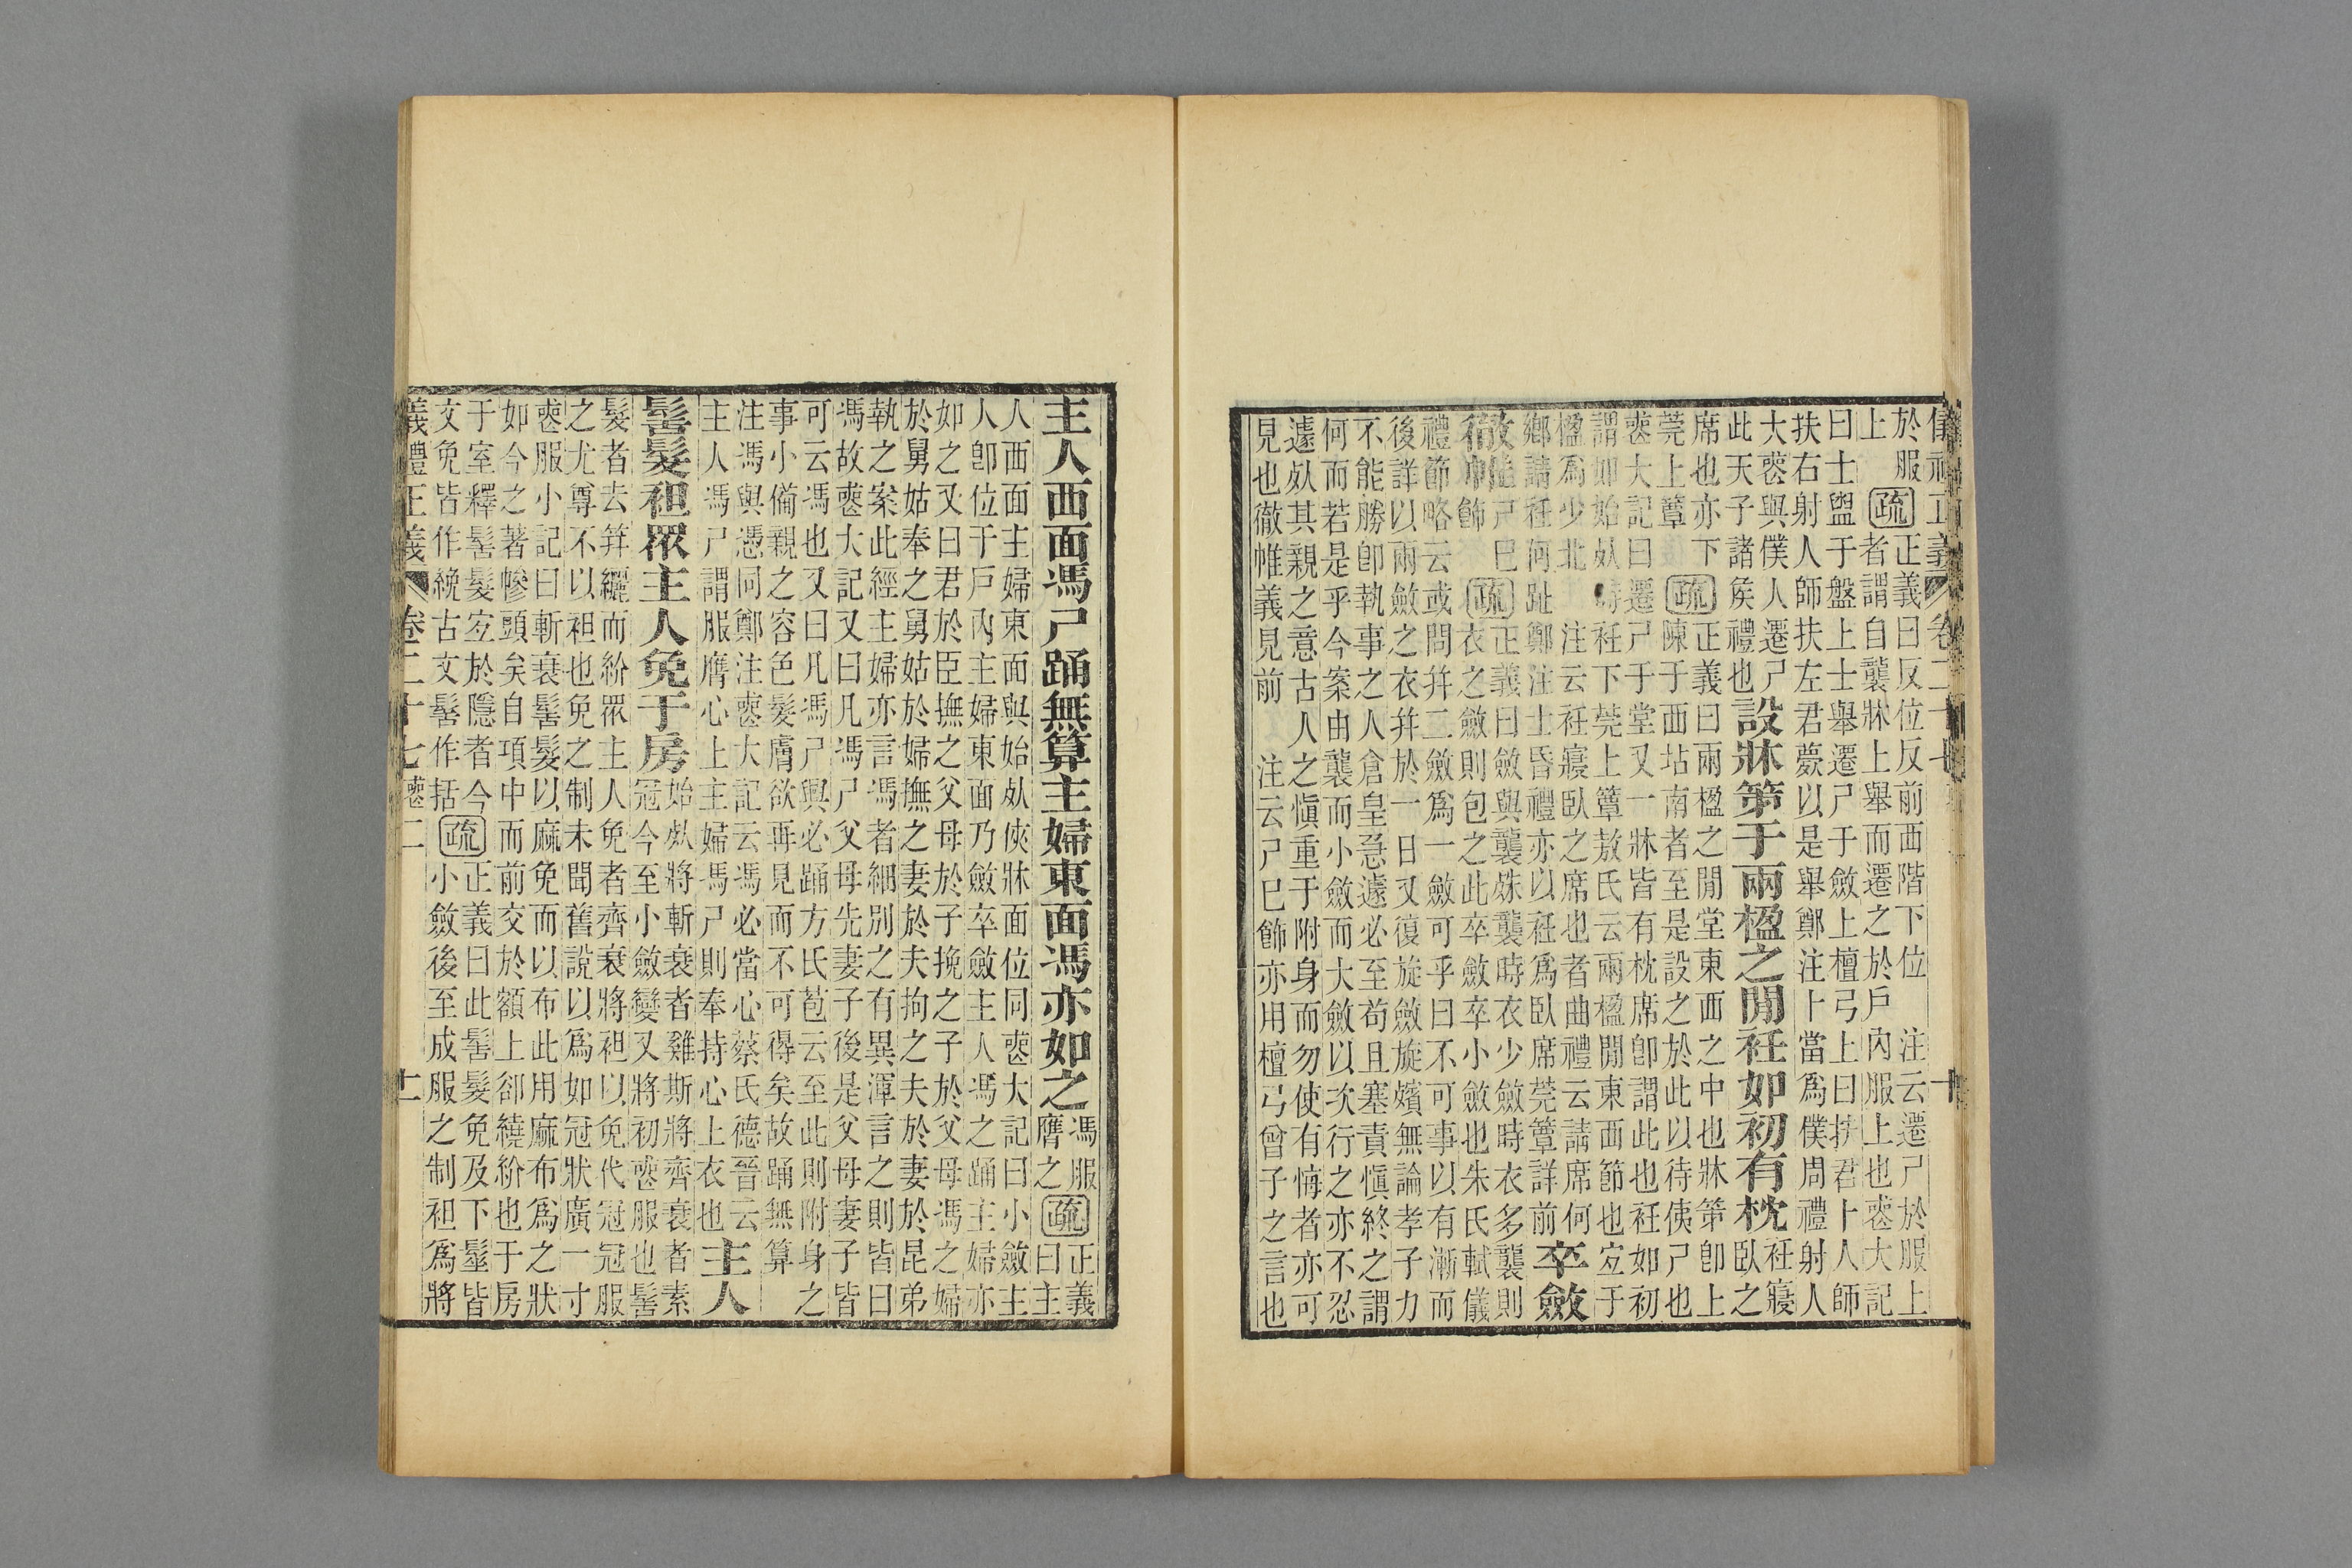 儀禮正義 卷二十七 十
於服
上
疏
正義曰反位反前西階下位　注云遷尸於服上
者謂自襲牀上舉而遷之於戶內服上也喪大記
曰士盥于盤上士舉遷尸于斂上檀弓上曰扶君卜人師
扶右射人師扶左君薨以是舉鄭注卜當爲僕周禮射人
大喪與僕人遷尸
此天子諸矦禮也
設牀笫于兩楹之閒衽如初有枕
衽寢
臥之
席也亦下
莞上簟
疏
正義曰兩楹之閒堂東西之中也牀笫卽上
陳于西坫南者至是設之於此以待俠尸也
喪大記曰遷尸于堂又一牀皆有枕席卽謂此也衽如初
謂如始死時衽下莞上簟敖氏云兩楹閒東西節也宜于
楹爲少北　注云衽寢臥之席也者曲禮云請席何
鄉請衽何趾鄭注士昏禮亦以衽爲臥席莞簟詳前
卒斂
徹帷
尸已
飾
疏
正義曰斂與襲殊襲時衣少斂時衣多襲則
衣之斂則包之此卒斂卒小斂也朱氏軾儀
禮節略云或問幷二斂爲一斂可乎曰不可事以有漸而
後詳以兩斂之衣幷於一日又復旋斂旋殯無論孝子力
不能勝卽執事之人倉皇急遽必至苟且塞責愼終之謂
何而若是乎今案由襲而小斂而大斂以次行之亦不忍
遽死其親之意古人之愼重于附身而勿使有悔者亦可
見也徹帷義見前　注云尸已飾亦用檀弓曾子之言也
主人西面馮尸踊無算主婦東面馮亦如之
馮服
膺之
疏
正義
曰主
人西面主婦東面與始死俠牀面位同喪大記曰小斂主
人卽位于戶內主婦東面乃斂卒斂主人馮之踊主婦亦
如之又曰君於臣撫之父母於子挽之子於父母馮之婦
於舅姑奉之舅姑於婦撫之妻於夫拘之夫於妻於昆弟
執之案此經主婦亦言馮者細別之有異渾言之則皆曰
馮故喪大記又曰凡馮尸父母先妻子後是父母妻子皆
可云馮也又曰凡馮尸興必踊方氏苞云至此則附身之
事小備親之容色髮膚欲再見而不可得矣故踊無算
注馮與憑同鄭注喪大記云馮必當心蔡氏德晉云
主人馮尸謂服膺心上主婦馮尸則奉持心上衣也
主人
髺髮袒眾主人免于房
始死將斬衰者雞斯將齊衰者素
冠今至小斂變又將初喪服也髺
髮者去笄纚而紒眾主人免者齊衰將袒以免代冠冠服
之尤尊不以袒也免之制未聞舊說以爲如冠狀廣一寸
喪服小記曰斬衰髺髮以麻免而以布此用麻布爲之狀
如今之著幓頭矣自項中而前交於額上郤繞紒也于房
于室釋髺髮宜於隱者今
文免皆作絻古文髺作括
疏
正義曰此髺髮免及下髽皆
小斂後至成服之制袒爲將
義禮正義 卷二十七 喪二 十一